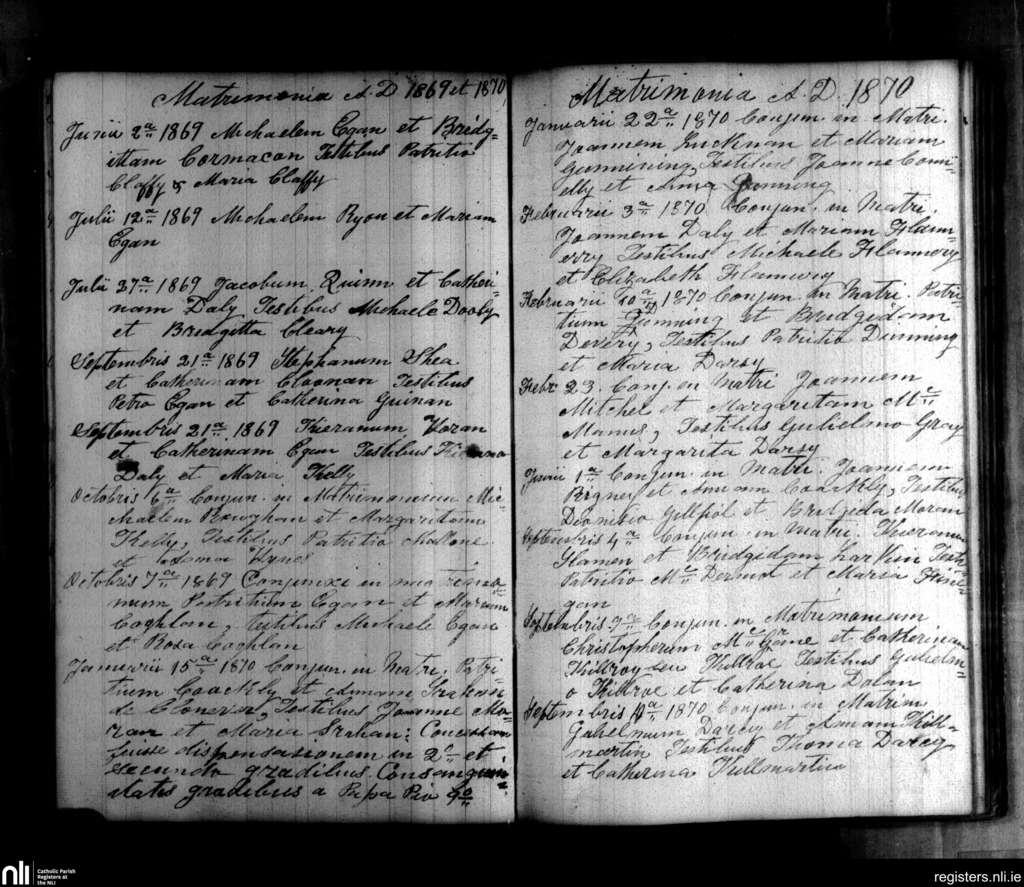 Matrimonia A.D 1869 et 1870
Junii 2a 1869 Michaelem Egan et Bridg=
ittam Cormacan Testibus Patritio
Claffy & Maria Claffy
Julii 12a 1869 Michaelem Ryan et Mariam
Egan
Julii 27a 1869 Jacobum Quinn et Catheri=
nam Daly Testibus Michaele Dooly
et Bredgitta Cleary
Septembris 21a 1869 Stephanum Shea
et Catherinam Cloonan Testibus
Petro Egan et Catherina Guinan
Septembris 21a 1869 Kieranum Horan
et Catherinam Egan Testibus
Daly et Maria Kelly
Octobris 6a Conjun. in Matrimonium Mic
haelem et Margaritam
Kelly, Testibus Patritio Mallone
et
Octobris 7a 1869 Conjunxi in matrimo
nium Patritium Egan et Mariam
Coghlan, testibus Michaele Egan
et Rosa Coghlan
Januarii 15a 1870 Conjun. in Matri. Patri
tium Coackly et Annam
de Clonever, Testibus Joanne Mo=
ran et Maria
fuisse dispensationem in 2o et
secundo gradibus Consanguini
tatis gradibus a Papa Pio 9o
Matrimonia A.D. 1870
Januarii 22a 1870 Conjun. in Matri.
Joannem Lucknan et Mariam
Testibus Joanne Conn
elly et Anna Gunning
Februarii 3a 1870 Conjun. in Matri.
Joannem Daly et Mariam Flann=
erry Testibus Michaele Flannery
et Elizabeth Flannery
Februarii 10a 1870 Conjun. in Matri. Patri
tium Dunning et Bridgedam
Devery, Testibus Patritio Dunning
et Maria Darsy
Febr. 23. Conj. in Matri Joannem
Mitchel et Margaritam Mc
Manus, Testibus Gulielmo Gray
et Margarita Darsy
Junii 1a Conjun. in Matri. Joannem
Rigney et Annam Coackly, Testibus
Dionisio Gillfoil et Bridgeda Moran
Septembris 4a Conjun. in Matri. Kieranum
et Bridgedam Larkin Testi
Patritio Mc Dermot et Maria Fine
gan
Septembris 7a Conjun. in Matrimonium
Christopherum Mc et Catherinam
Kilroy seu Killroe Testibus Gulielm
o Killroe et Catherina Dolan
Septembris 14a 1870 Conjun. in Matrim
Gulielmum Darcy et Annam Kill=
martin Testibus Thoma Darcy
et Catherina Killmartin
nli
Catholic Parish
Registers at
the NLI
registers.nli.ie